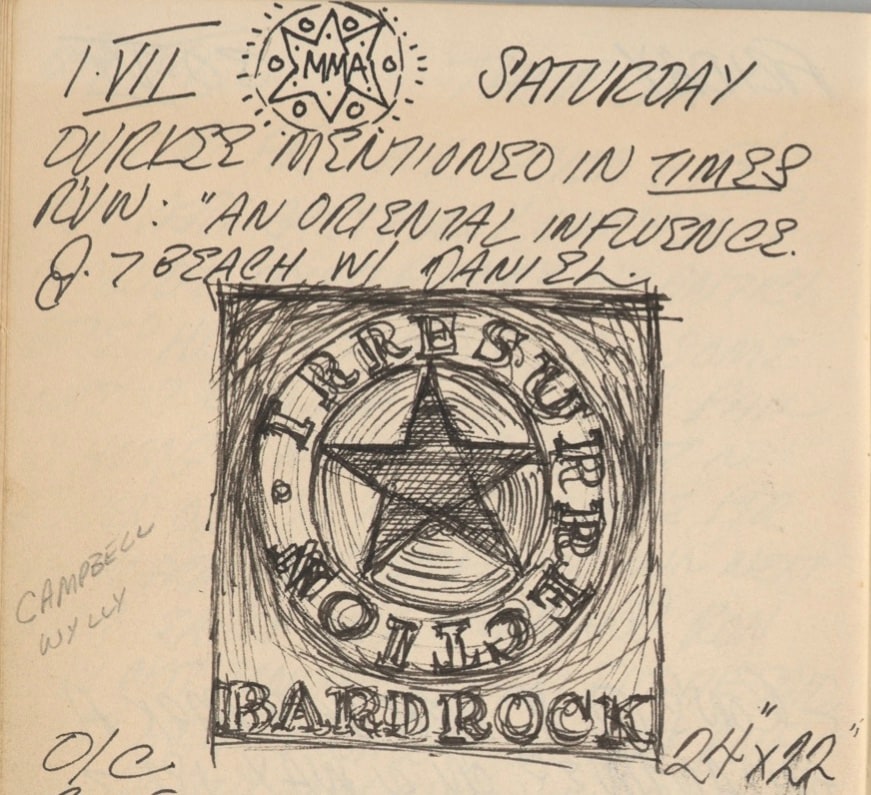 1·VII MMA SATURDAY
DURKEE MENTIONED IN TIMES
RVW: "AN ORIENTAL INFLUENCE.
7 BEACH W/ DANIEL.
IRRESURRECTION
BARDROCK
CAMPBELL
WYLLY
O/C 24" x 22"